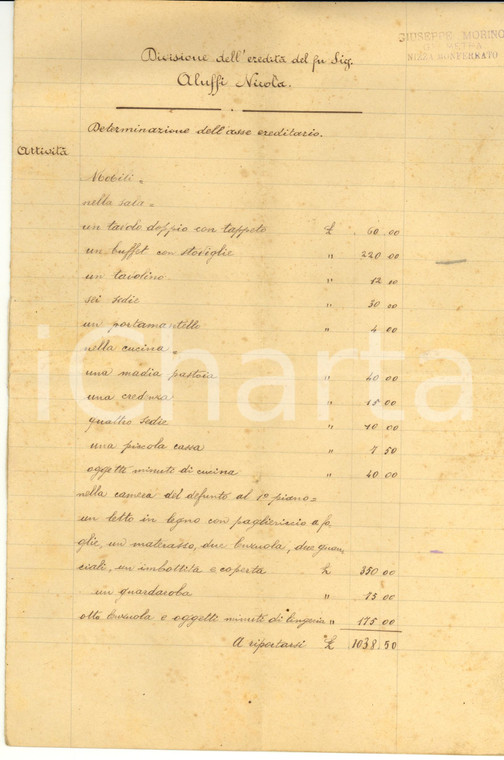 GIUSEPPE MORINO
GEOMETRA
NIZZA MONFERRATO
Divisione dell'eredità del fu Sig.
Aluffi Nicola.
Determinazione dell'asse ereditario.
Attività
Mobili =
nella sala =
un tavolo doppio con tappeto £ 60.00
un buffet con stoviglie " 220.00
un tavolino " 12.00
sei sedie " 30.00
un portamantello " 4.00
nella cucina =
una madia pastoia " 40.00
una credenza " 15.00
quattro sedie " 10.00
una piccola cassa " 7.50
oggetti minuti di cucina " 40.00
nella camera del defunto al 1° piano =
un letto in legno con pagliericcio a fo,
glie, un materasso, due lenzuola, due guan,
ciali, un imbottita e coperta £ 350.00
un guardaroba " 75.00
otto lenzuola e oggetti minuti di lingeria " 175.00
A riportarsi £ 1038.50
iCharta